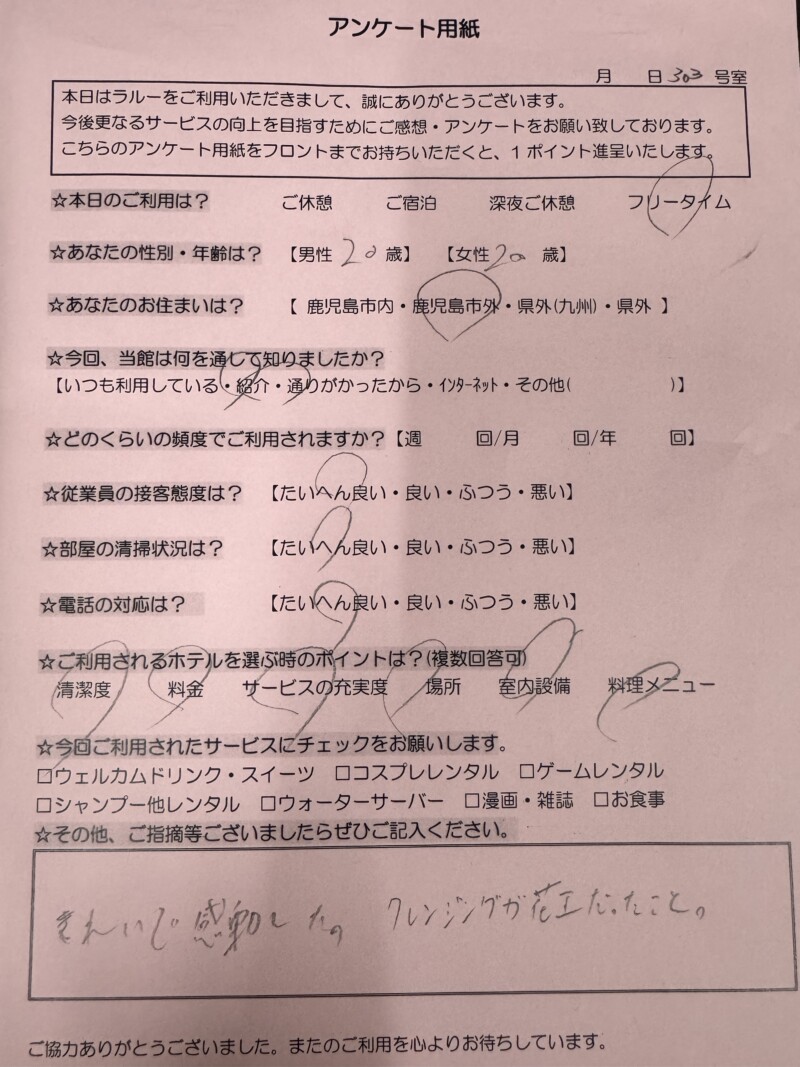 アンケート用紙
月 日 303 号室
本日はラルーをご利用いただきまして、誠にありがとうございます。
今後更なるサービスの向上を目指すためにご感想・アンケートをお願い致しております。
こちらのアンケート用紙をフロントまでお持ちいただくと、1 ポイント進呈いたします。
☆本日のご利用は? ご休憩 ご宿泊 深夜ご休憩 フリータイム
☆あなたの性別・年齢は? 【男性 20 歳】 【女性 20 歳】
☆あなたのお住まいは? 【 鹿児島市内・鹿児島市外・県外(九州)・県外 】
☆今回、当館は何を通して知りましたか?
【いつも利用している・紹介・通りがかったから・インターネット・その他( )】
☆どのくらいの頻度でご利用されますか?【週 回/月 回/年 回】
☆従業員の接客態度は? 【たいへん良い・良い・ふつう・悪い】
☆部屋の清掃状況は? 【たいへん良い・良い・ふつう・悪い】
☆電話の対応は? 【たいへん良い・良い・ふつう・悪い】
☆ご利用されるホテルを選ぶ時のポイントは?(複数回答可)
清潔度 料金 サービスの充実度 場所 室内設備 料理メニュー
☆今回ご利用されたサービスにチェックをお願いします。
□ウェルカムドリンク・スイーツ □コスプレレンタル □ゲームレンタル
□シャンプー他レンタル □ウォーターサーバー □漫画・雑誌 □お食事
☆その他、ご指摘等ございましたらぜひご記入ください。
きれいで感動した。 クレンジングが花王だったこと。
ご協力ありがとうございました。またのご利用を心よりお待ちしています。